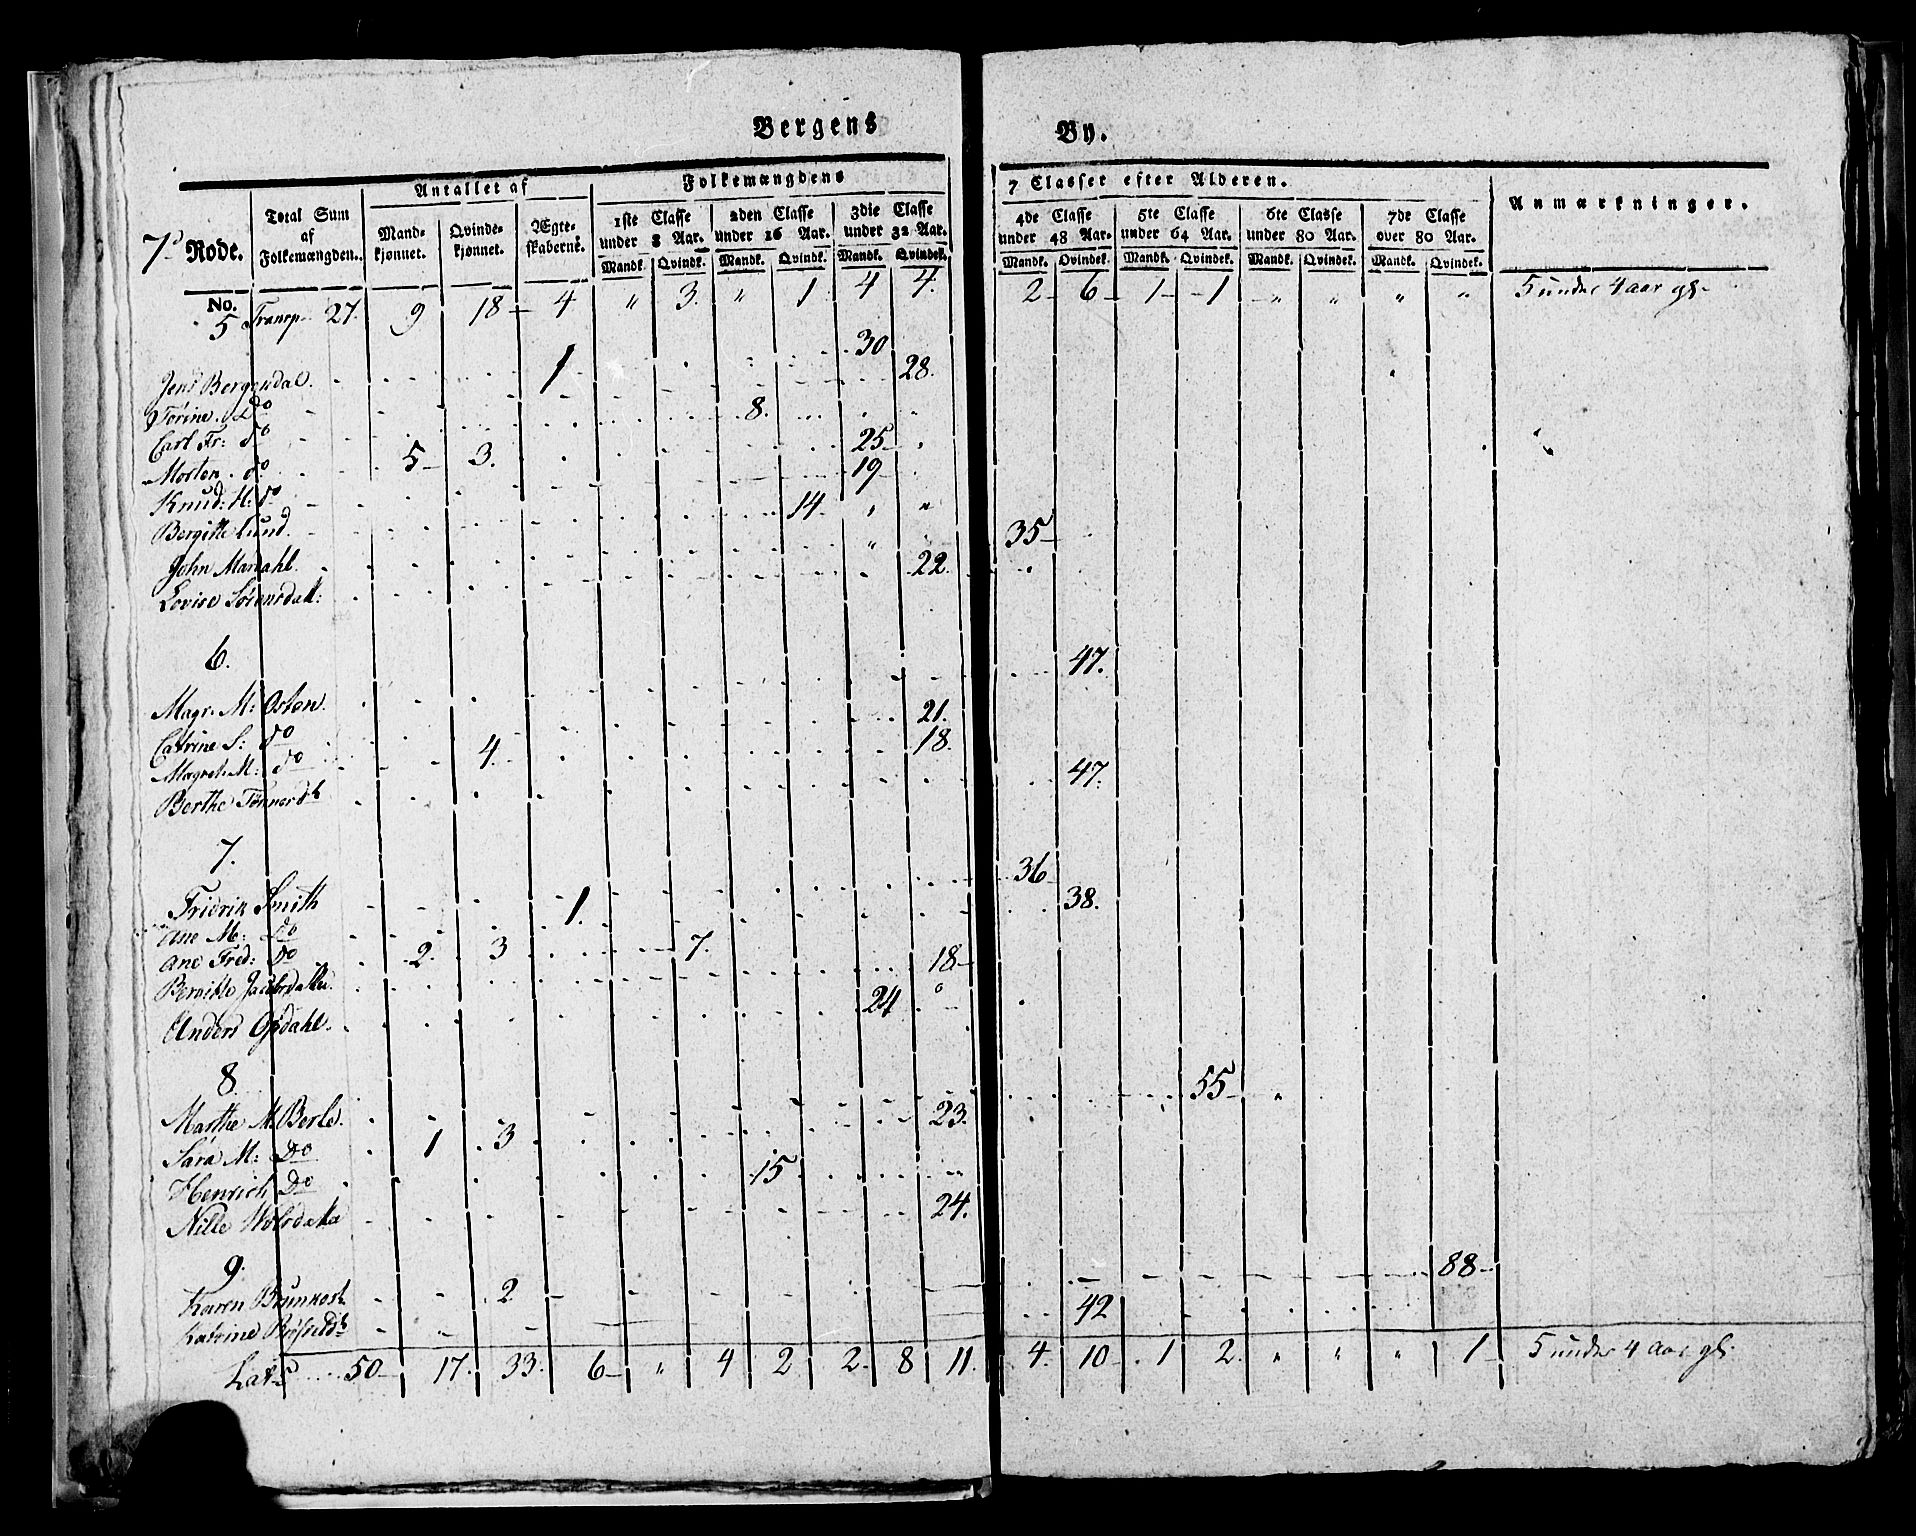 Bergens By.
7de Rode. Total Sum af Folkemængden. Antallet af Mand-kjønnet. Qvinde-kjønnet. Ægte-skaberne. Folkemængdens 7 Classer efter Alderen. Anmærkninger.
1ste Classe under 8 Aar. 2den Classe under 16 Aar. 3die Classe under 32 Aar. 4de Classe under 48 Aar. 5te Classe under 64 Aar. 6te Classe under 80 Aar. 7de Classe over 80 Aar.
Mandk. Qvindk. Mandk. Qvindk. Mandk. Qvindek. Mandk. Qvindek. Mandk. Qvindek. Mandk. Qvindek. Mandk. Qvindek.
No.
5 Transp. 27. 9 18 4 " 3. " 1 4 4. 2 6 1 1 " " " " 5 under 4 aar gl.
Jens Bergendal. 1 30
Torine Do 28.
Carl Fr: do 8.
Morten do 5 3. 25
Knud: H: do 19
Bergitte Lund. 14.
John Mardahl. 35
Lovise Sörensdatt: 22.
6.
Magr. M: Osten. 47.
Catrine S: do 21.
Magret. M: do 4. 18.
Berthe Tönnesd. 47.
7.
Fridrik Smith 1. 36
Ane M: Do 38.
Ane Fred: Do 2. 3 7.
Bergitte Jacobsdatter. 18
Anders Opdahl. 24
8.
Marthe M. Berle. 55
Sara M: Do 1 3 23.
Henrich Do 15
Nille 24.
9.
Karen Brunkost. 2 88
Katrine 42
Lat. 50 17. 33. 6 " 4 2 2 8 11. 4. 10 1 2. " " " 1 5 under 4 aar gl.